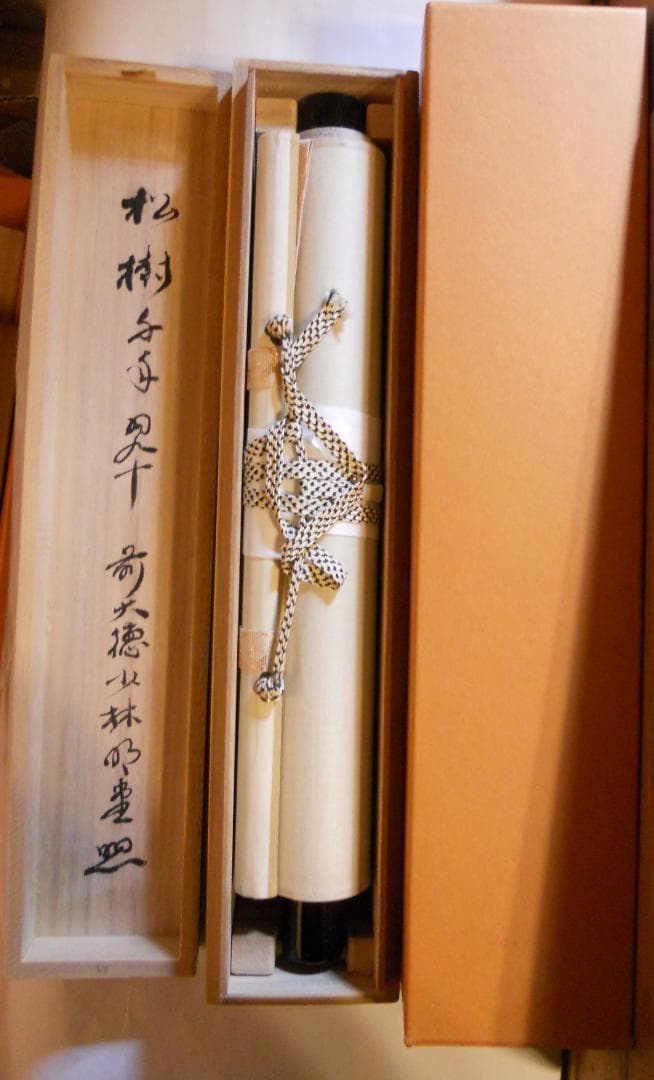 松樹千年翠 前大徳少林明堂